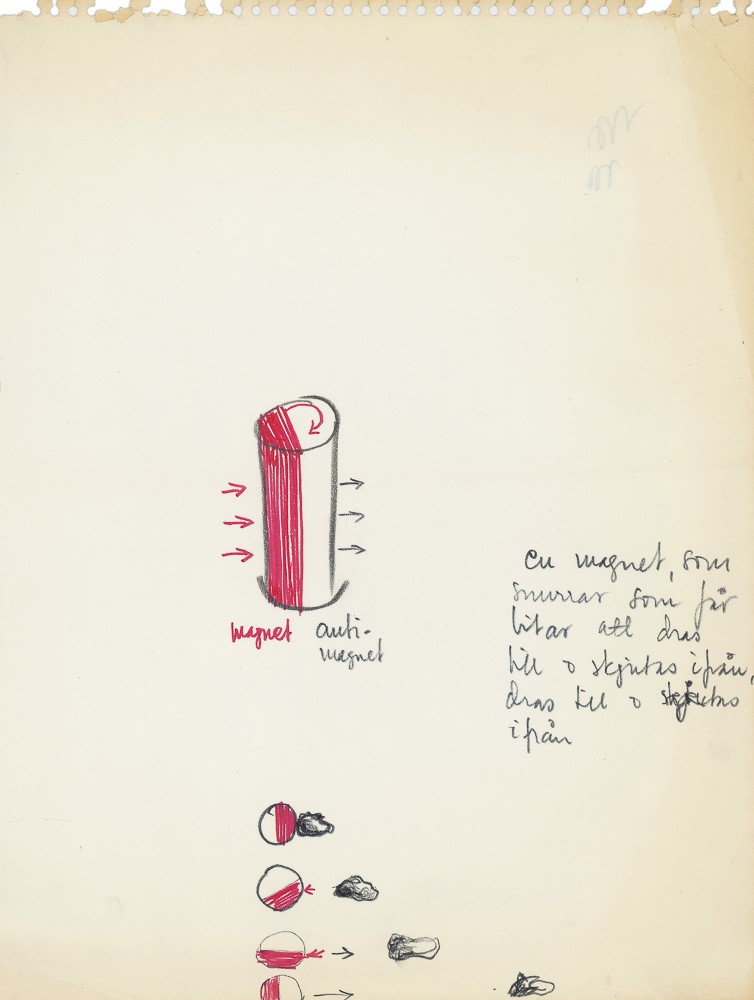 magnet
anti-
magnet
en magnet, som
snurrar som får
bitar att dras
till o skjutas ifrån,
dras till o skjutas
ifrån